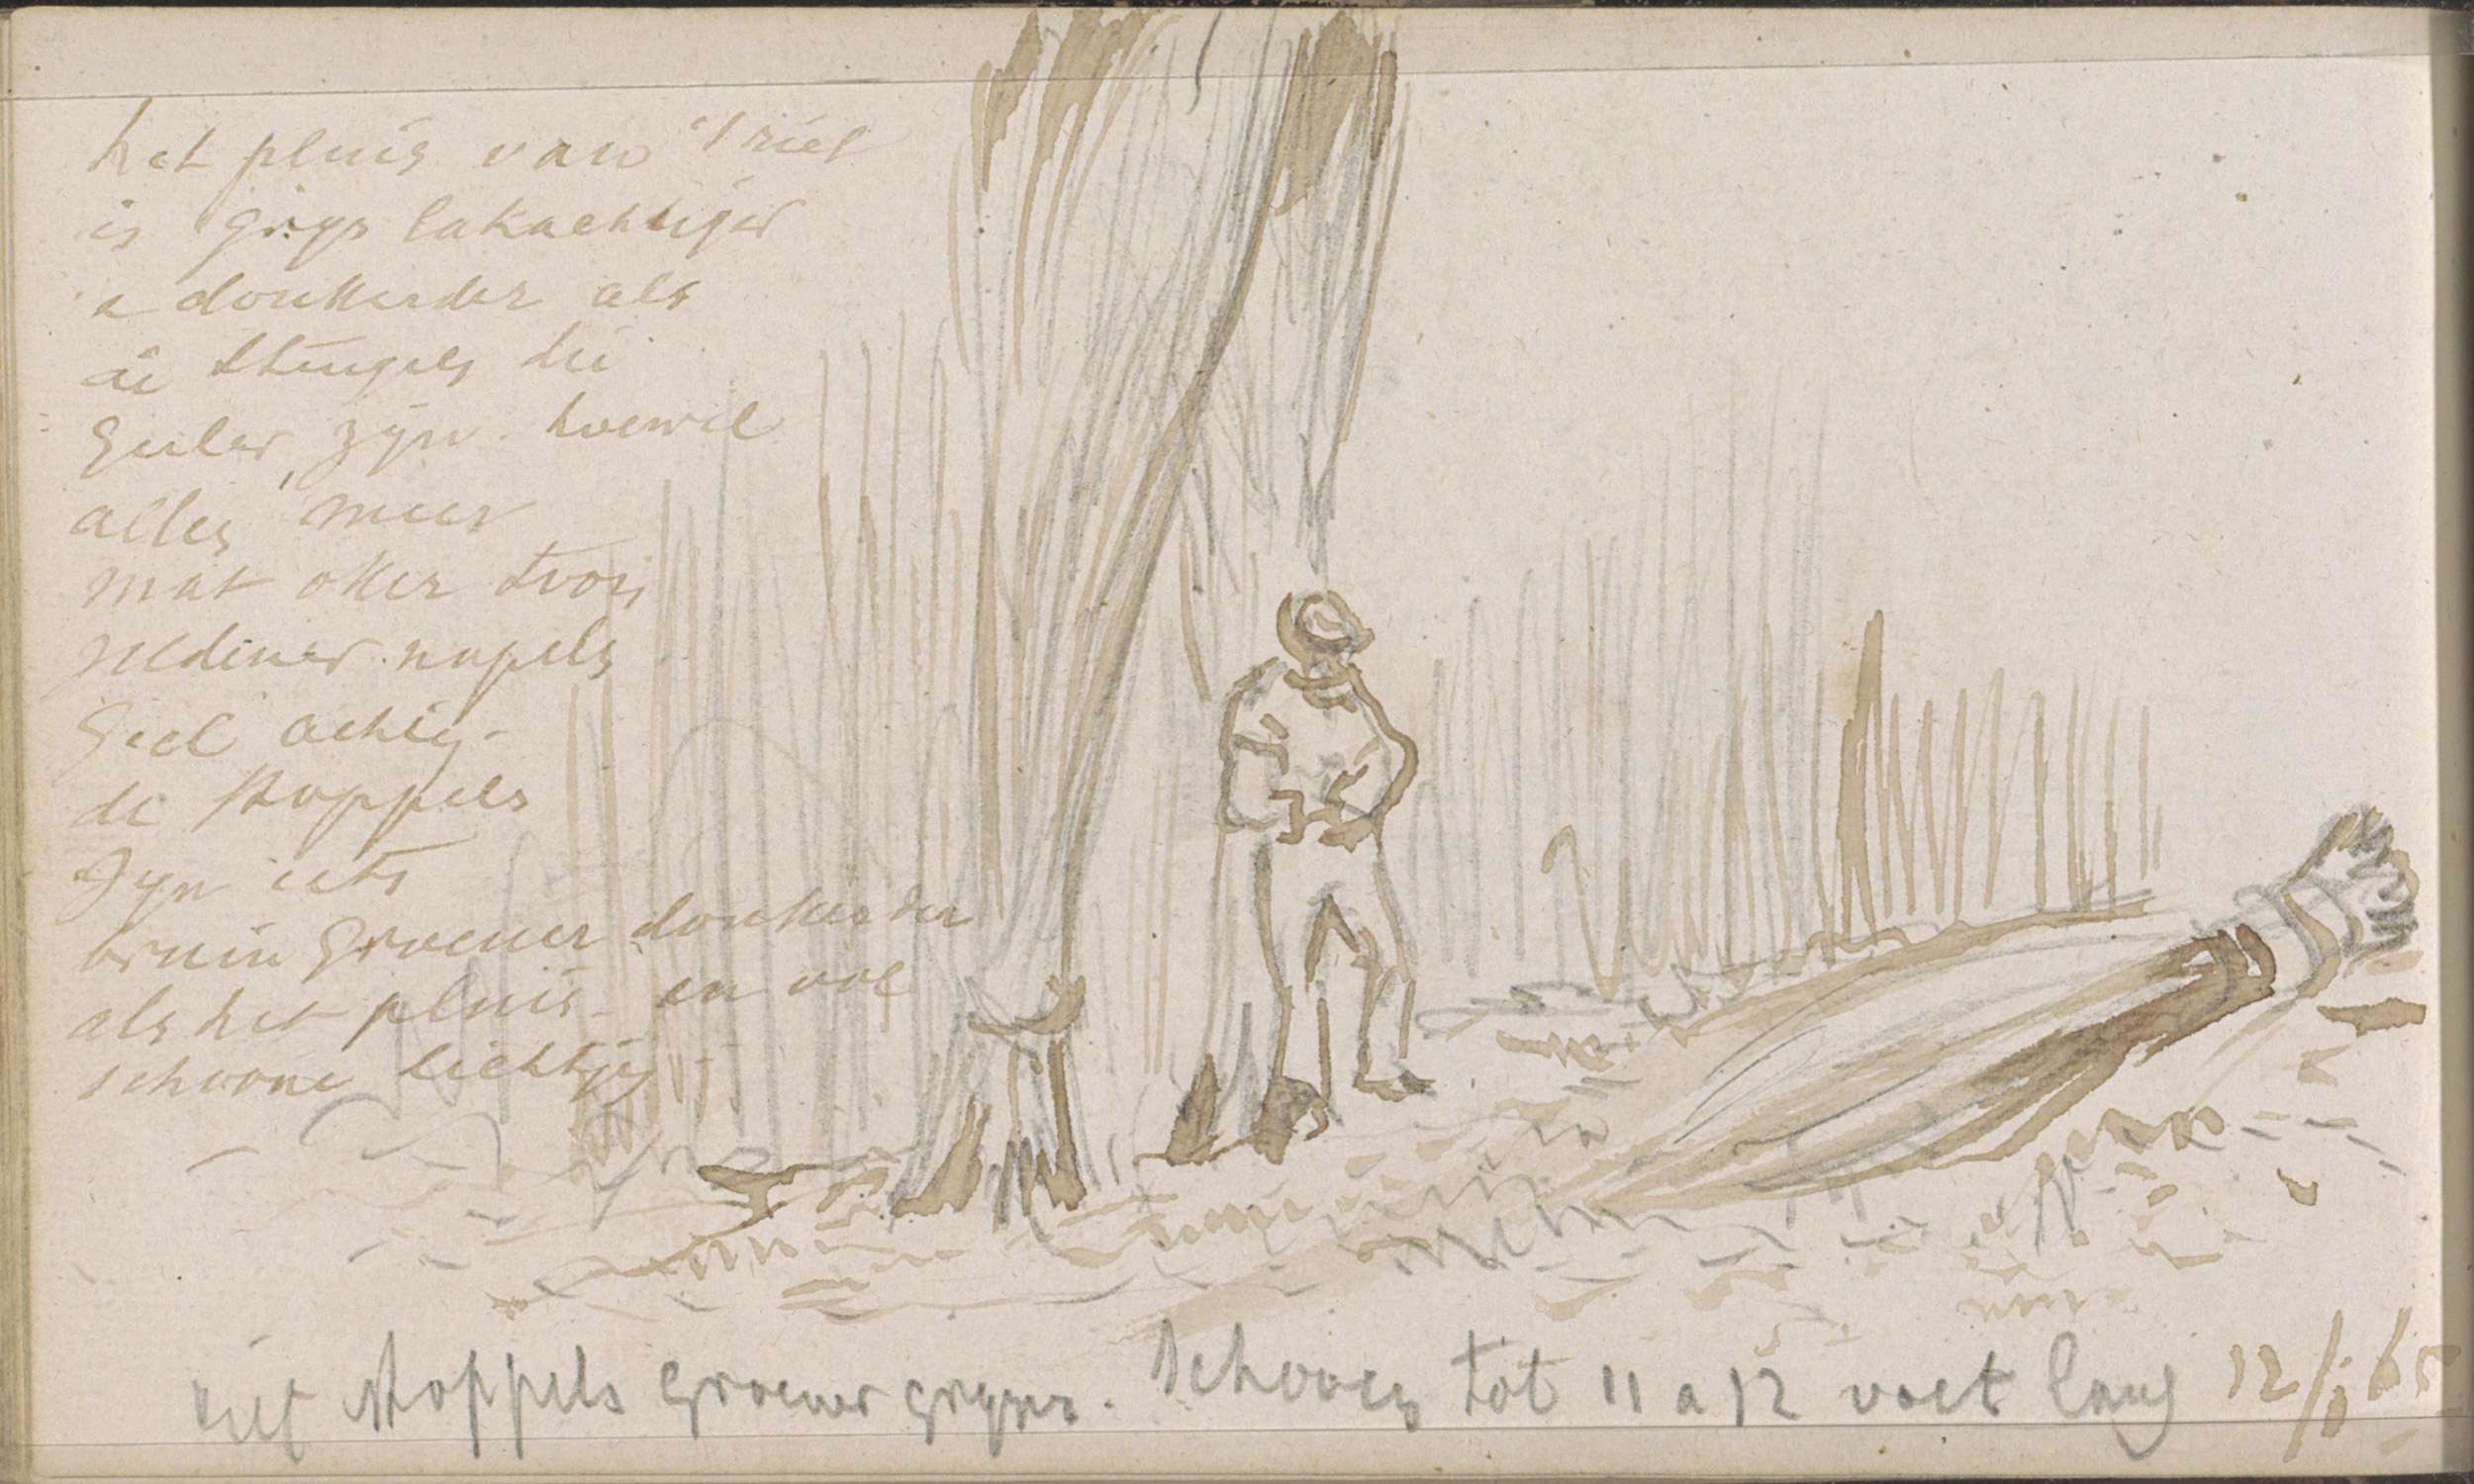 het pluis van 't riet
is grys lakachtiger
& donkerder als
de stengels die
geeler zyn. hoewel
alles meer
mat oker toon
napels
geel achtig.
de stoppels
zyn iets
bruin groener donkerder
als het pluis. en vol
schoone lichtjes.
riet stoppels groener gryzer. schoven tot 11 a 12 voet lang 12/1 65